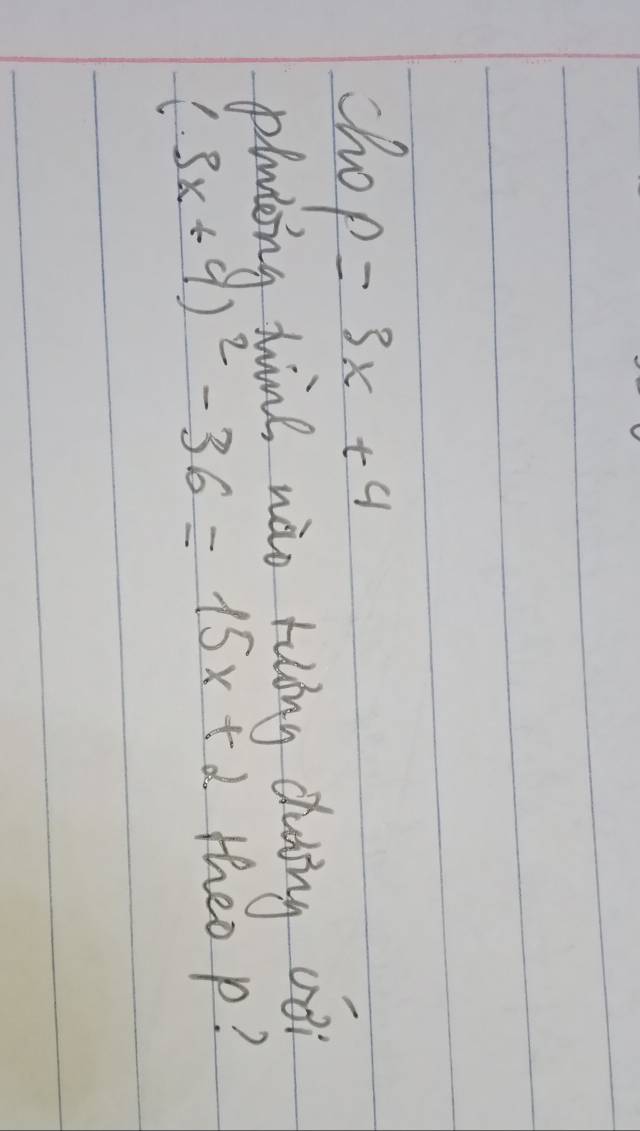 Cho p = 3x + 4
phương trình nào tương đương với
(3x + 4)² - 36 = 15x + 2 theo p?